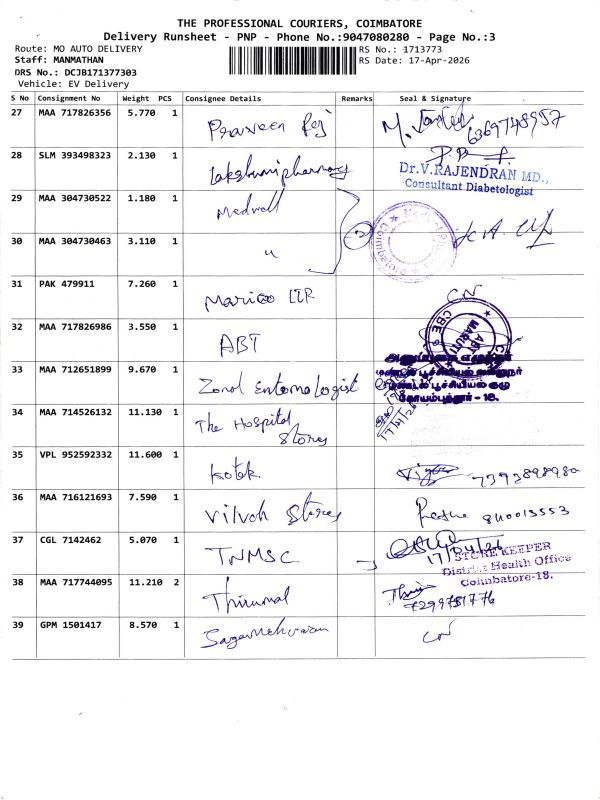 THE PROFESSIONAL COURIERS, COIMBATORE
Delivery Runsheet - PNP - Phone No.:9047080280 - Page No.:3
Route: MO AUTO DELIVERY RS No.: 1713773
Staff: MANMATHAN RS Date: 17-Apr-2026
DRS No.: DCJB171377303
Vehicle: EV Delivery
S No Consignment No Weight PCS Consignee Details Remarks Seal & Signature
27 MAA 717826356 5.770 1 Praveen Raj 6369748957
28 SLM 393498323 2.130 1 Lakshmi pharmacy
Dr.V.RAJENDRAN MD.,
Consultant Diabetologist
29 MAA 304730522 1.180 1 Medwell
30 MAA 304730463 3.110 1 " 2
31 PAK 479911 7.260 1 Marico LTR CN
32 MAA 717826986 3.550 1 ABT
ABT MARUTI CBE
33 MAA 712651899 9.670 1 Zonal Entomologist
மண்டல பூச்சியியல் வல்லுநர்
மண்டல பூச்சியியல் குழு
கோயம்புத்தூர் - 18.
34 MAA 714526132 11.130 1 The Hospital Stores
17/4/26
35 VPL 952592332 11.600 1 kotak 7393898980
36 MAA 716121693 7.590 1 Stores 840013553
37 CGL 7142462 5.070 1 TNMSC 17/04/26
STORE KEEPER
District Health Office
Coimbatore-18.
38 MAA 717744095 11.210 2 Thirumal
7299751776
39 GPM 1501417 8.570 1 CN